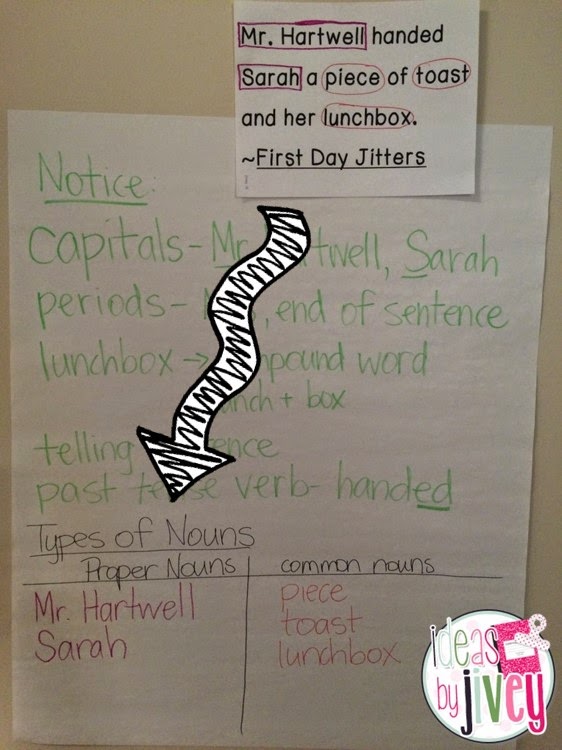 Mr. Hartwell handed
Sarah a piece of toast
and her lunchbox.
~First Day Jitters
Notice:
Capitals- Mr. Hartwell, Sarah
periods- end of sentence
lunchbox → compound word
lunch + box
telling sentence
past tense verb- handed
Types of Nouns
Proper Nouns common nouns
Mr. Hartwell piece
Sarah toast
lunchbox
ideas
by jivey